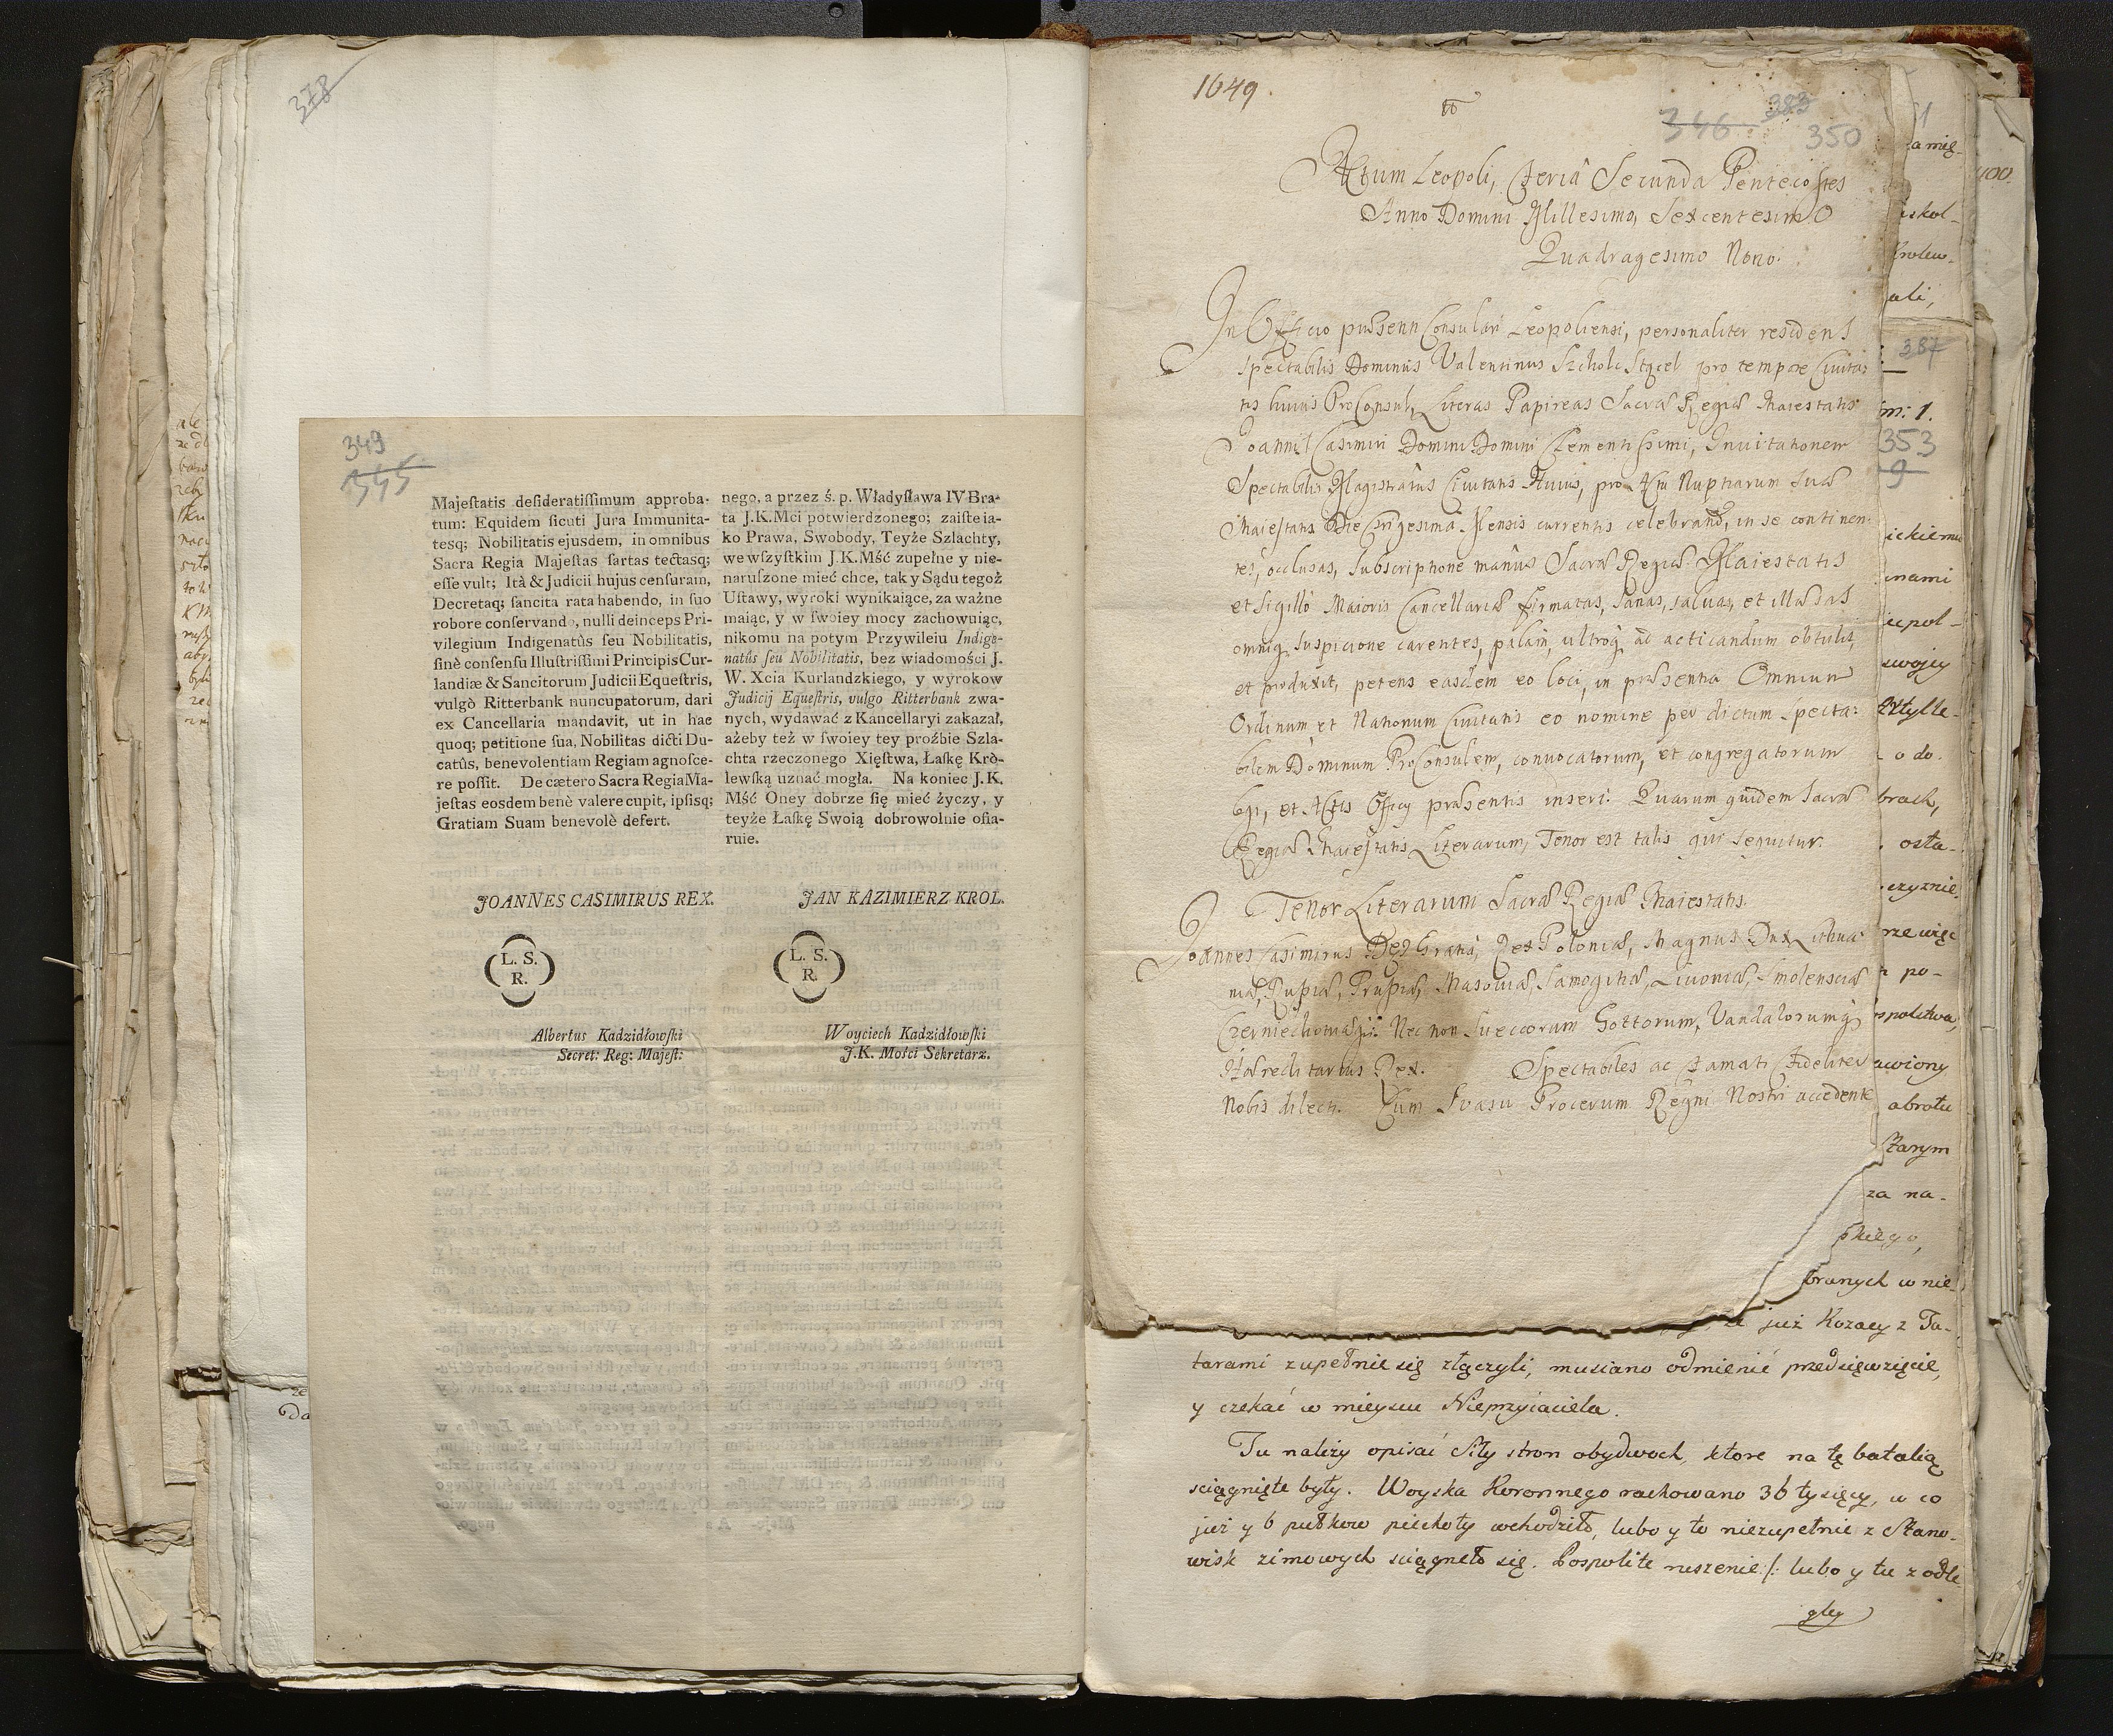 378
349
345
Majeſtatis deſideratiſſimum approba-
tum: Equidem ſicuti Jura Immunita-
tesq; Nobilitatis ejusdem, in omnibus
Sacra Regia Majeſtas ſartas tectasq;
eſſe vult; Ità & Judicii hujus cenſuram,
Decretaq; ſancita rata habendo, in ſuo
robore conſervando, nulli deinceps Pri-
vilegium Indigenatûs ſeu Nobilitatis,
ſinè conſenſu Illuſtriſſimi Principis Cur-
landiæ & Sancitorum Judicii Equeſtris,
vulgò Ritterbank nuncupatorum, dari
ex Cancellaria mandavit, ut in hac
quoq; petitione ſua, Nobilitas dicti Du-
catûs, benevolentiam Regiam agnoſce-
re poſſit. De cætero Sacra Regia Ma-
jeſtas eosdem benè valere cupit, ipſisq;
Gratiam Suam benevolè defert.
JOANNES CASIMIRUS REX.
L. S.
R.
Albertus Kadzidłowſki
Secret: Reg: Majeſt:
nego, a przez ś. p. Władyſława IV Bra-
ta J.K.Mci potwierdzonego; zaiſte ia-
ko Prawa, Swobody, Teyże Szlachty,
we wſzyſtkim J.K.Mść zupełne y nie-
naruſzone mieć chce, tak y Sądu tegoż
Uſtawy, wyroki wynikaiące, za ważne
maiąc, y w ſwoiey mocy zachowuiąc,
nikomu na potym Przywileiu Indige-
natûs ſeu Nobilitatis, bez wiadomości J.
W. Xcia Kurlandzkiego, y wyrokow
Judicij Equeſtris, vulgo Ritterbank zwa-
nych, wydawać z Kancellaryi zakazał,
ażeby też w ſwoiey tey proźbie Szla-
chta rzeczonego Xięſtwa, Łaſkę Kró-
lewſką uznać mogła. Na koniec J. K.
Mść Oney dobrze ſię mieć życzy, y
teyże Łaſkę Swoią dobrowolnie ofia-
ruie.
JAN KAZIMIERZ KROL.
L. S.
R.
Woyciech Kadzidłowſki
J.K. Mości Sekretarz.
1649.
346 383
350
Actum Leopoli, Feria Secunda Pentecostes
Anno Domini Millesimo, Sexcentesimo
Quadragesimo Nono.
In Officio Consulari Leopoliensi, personaliter residens
Spectabilis Dominus Valentinus Scholc Stącel pro tempore Civita-
tis huius ProConsul, Literas Papireas Sacræ Regiæ Maiestatis
Joannis Casimiri Domini Domini Clementissimi, Invitationem
Spectabilis Magistratus Civitatis Huius, pro Actu Nuptiarum Suæ
Maiestatis Die Trigesima Mensis currentis celebrand, in se continen-
tes, occlusas, Subscriptione manûs Sacræ Regiæ Maiestatis
et Sigillo Maioris Cancellariæ firmatas, Sanas, salvas, et illæsas
omniq suspicione carentes, palam, ultroq ad acticandum obtulit,
et produxit, petens easdem eo loci, in præsentia Omnium
Ordinum et Nationum Civitatis eo nomine per dictum Specta-
bilem Dominum ProConsulem, convocatorum, et congregatorum
legi, et Actis Officy præsentis inseri. Quarum quidem Sacræ
Regiæ Maiestatis Literarum, Tenor est talis qui sequitur.
Tenor Literarum Sacræ Regiæ Maiestatis.
Joannes Casimirus Dei Gratia, Rex Poloniæ, Magnus Dux Lithua-
niæ, Russiæ, Prussiæ, Masoviæ, Samogitiæ, Livoniæ, Smolensciæ
Czerniechoviæq. Nec non Sveccorum Gottorum, Vandalorumq
Hæreditarius Rex. Spectabiles ac Famati Fideliter
Nobis dilecti. Cum Svasu Procerum Regni Nostri accedente
już Kozacy z Ta-
tarami zupełnie się złączyli, musiano odmienić przedsięwzięcie,
y czekać w mieyscu Nieprzyiaciela.
Tu należy opisać Siły stron obydwoch, ktore na tę batalią
sciągnięte były. Woyska Koronnego rachowano 36 tysięcy, w co
już y 6 pułkow piechoty wchodziło, lubo y to niezupełnie z Stano-
wisk zimowych sciągneło się. Pospolite ruszenie /: lubo y tu z odle
gley
387
353
9
400.
a mię-
iskol-
Krolew-
ali,
m: 1.
ickiemu
inami
swoiey
o do-
brach,
osta-
czyznie
rze więc
po-
spolstwa,
awiony
abrotu
Starym
za na-
skiego,
branych w nie-